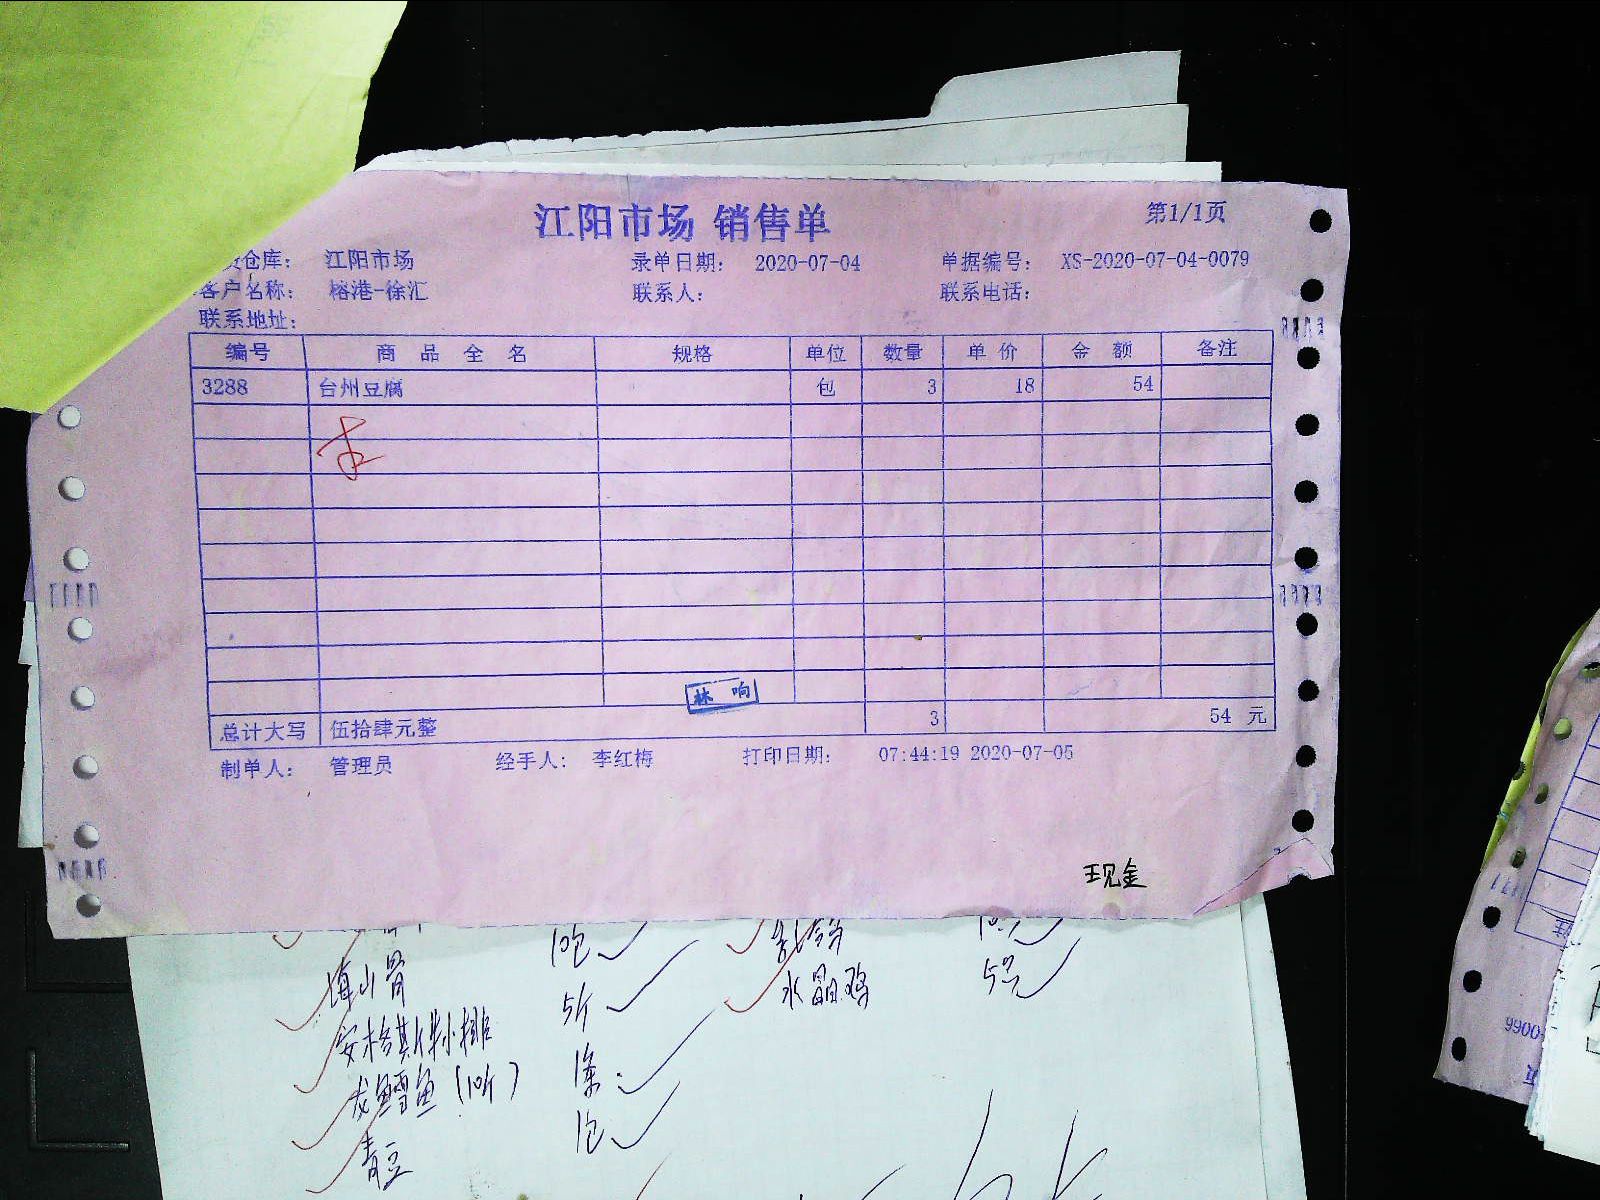 江阳市场 销售单
第1/1页
仓库： 江阳市场 录单日期： 2020-07-04 单据编号： XS-2020-07-04-0079
客户名称： 榕港-徐汇 联系人： 联系电话：
联系地址：
编号 商品全名 规格 单位 数量 单价 金额 备注
3288 台州豆腐 包 3 18 54
林响
总计大写 伍拾肆元整 3 54 元
制单人： 管理员 经手人： 李红梅 打印日期： 07:44:19 2020-07-05
现金
10包
5斤 水晶鸡
安格斯牛小排
龙鳕鱼（10斤） 1条
青豆 1包